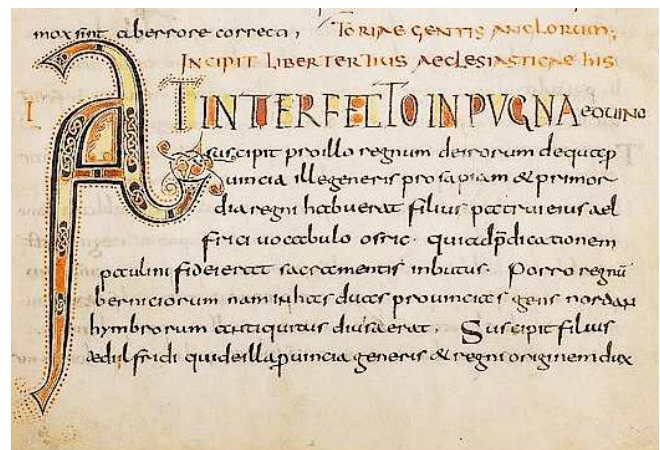 mox sint aberrore correcta, TORIAE GENTIS ANGLORUM;
INCIPIT LIBER TERTIUS AECLESIASTICAE HIS
I
AT INTERFECTO IN PVGNA EDUINO
suscipit pro illo regnum deirorum de qua ꝓ
uincia ille generis prosapiam & primor
dia regni habuerat filius patrui eius ael
frici uocabulo osric. qui ad p̄dicationem
paulini fidei erat sacramentis inbutus. Porro regnū
berniciorum nam in has duas prouincias gens nordan
hymbrorum antiquitus diuisa erat. Suscipit filius
ædilfridi qui de illa ꝓuincia generis & regni originem dux